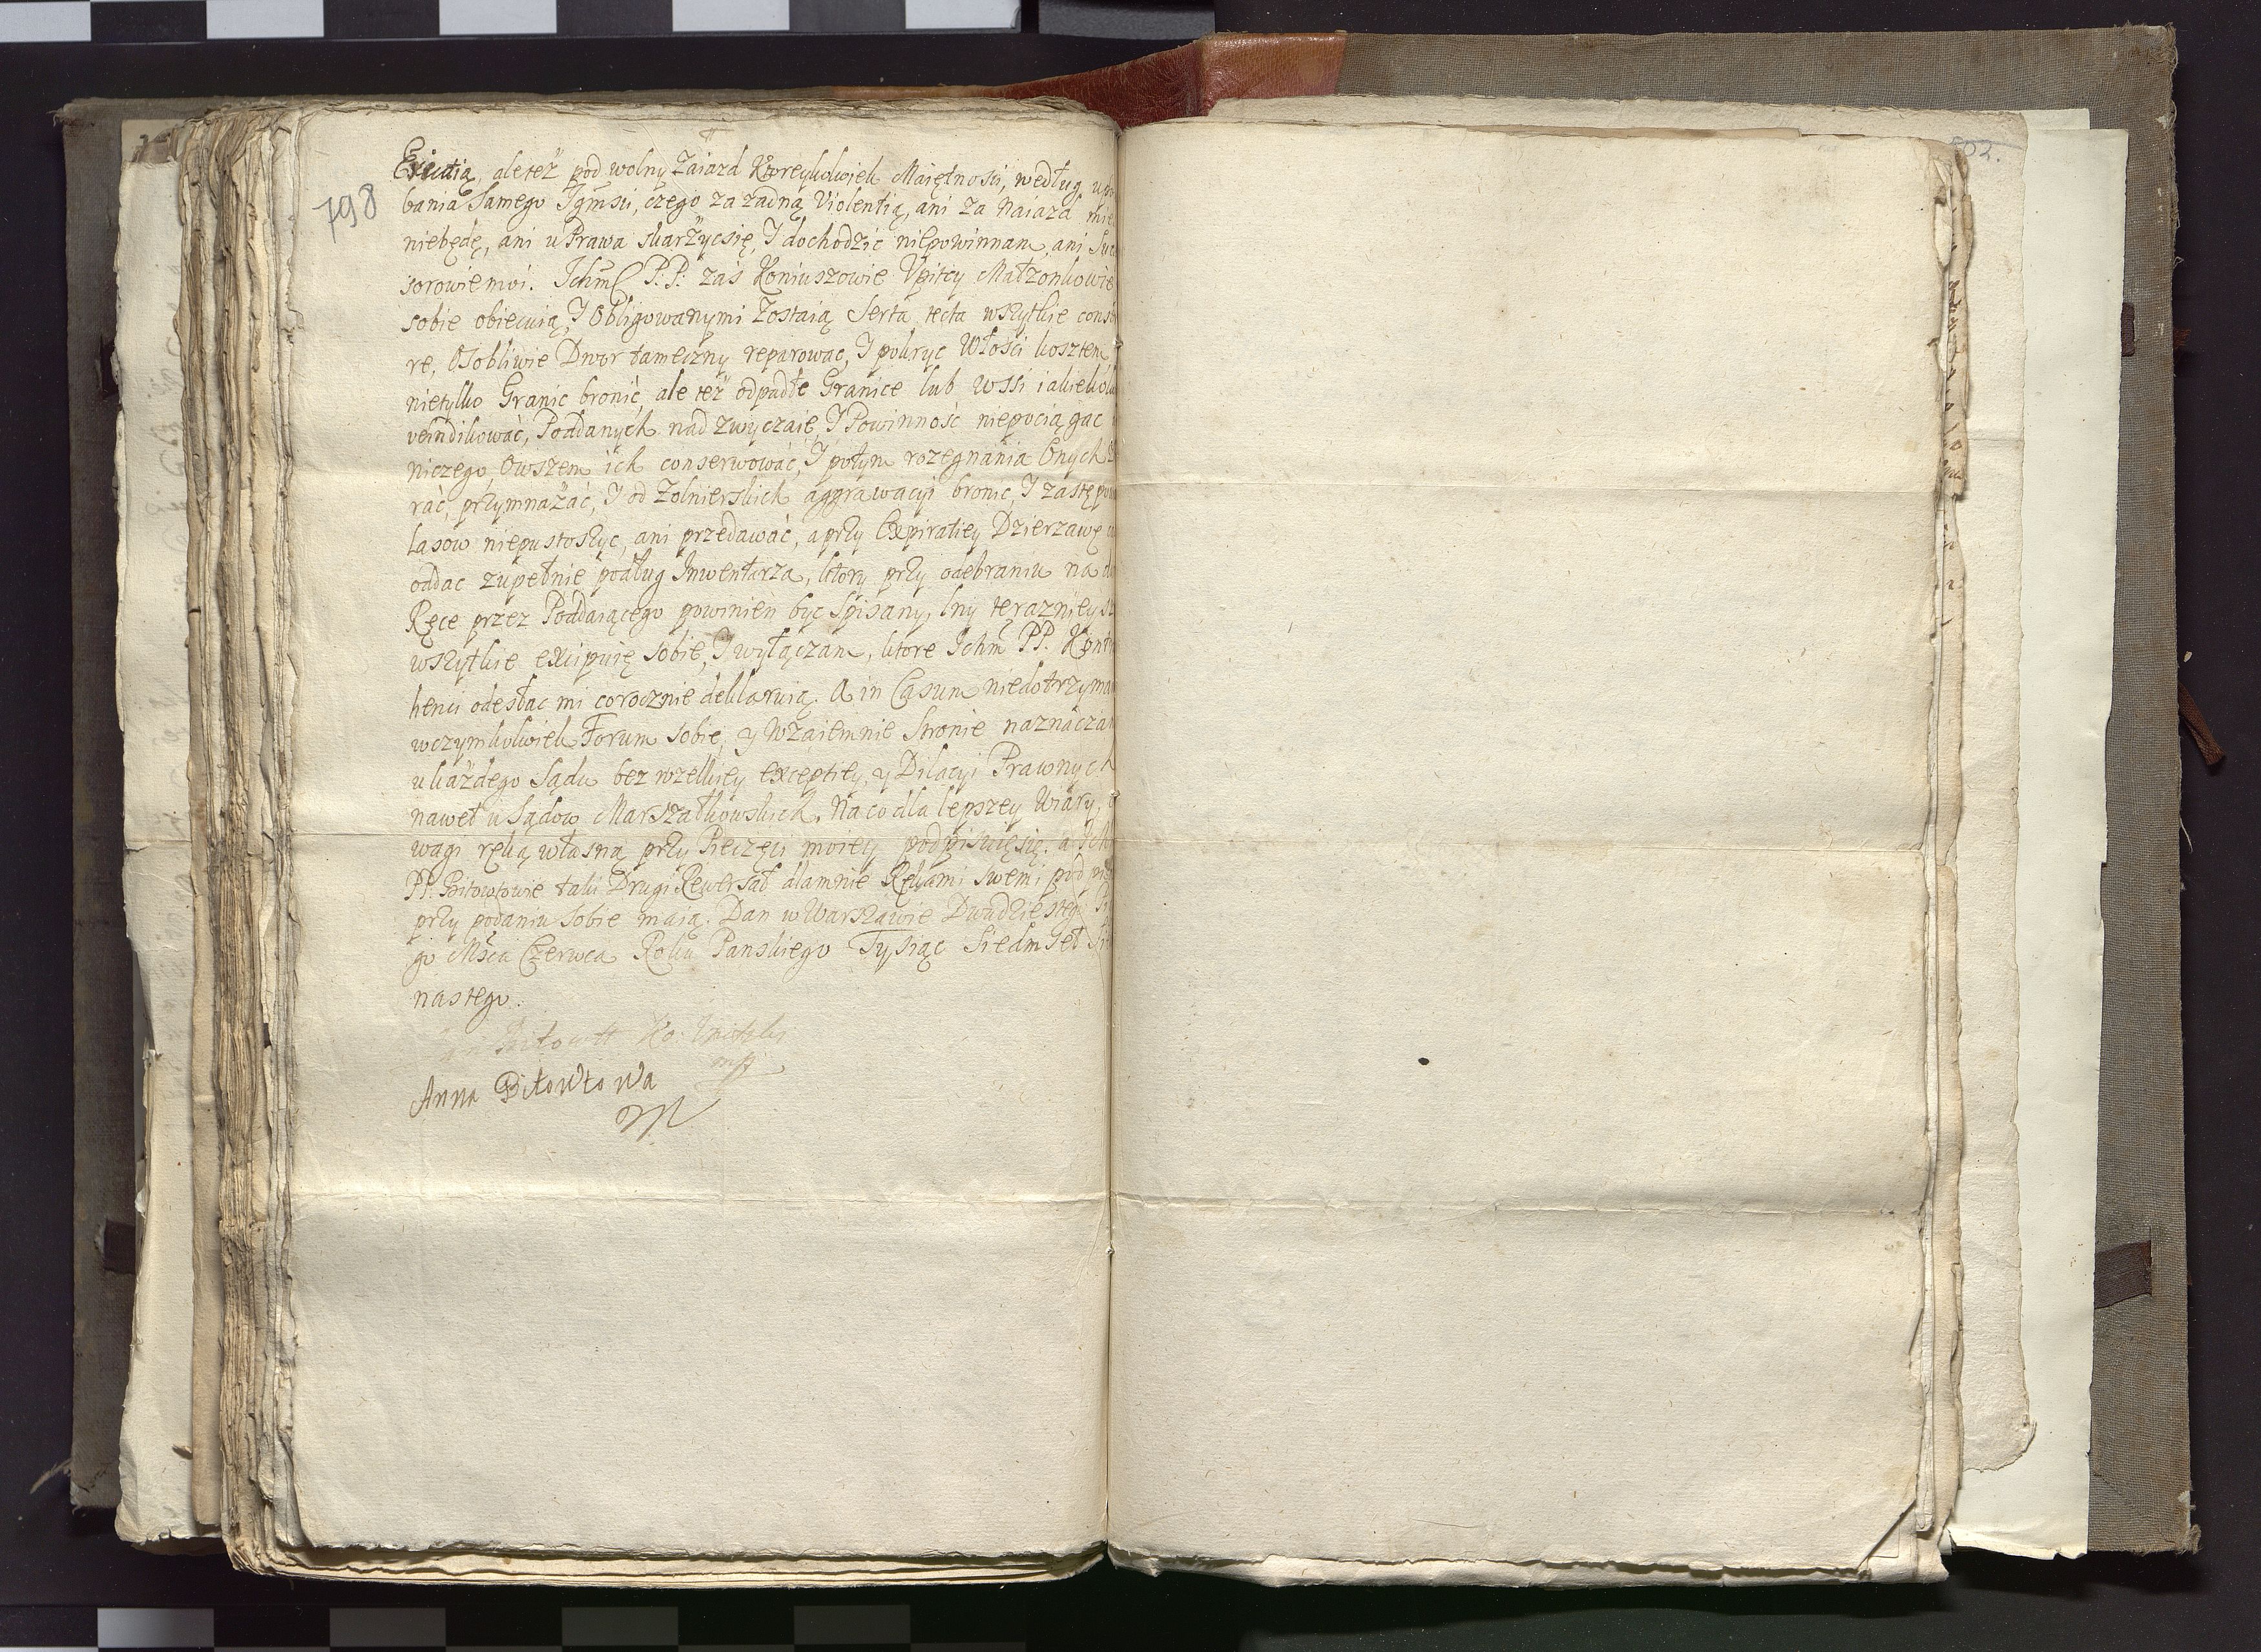 798
Evictią, ale też pod wolny Zaiazd Ktoreykolwiek Maiętnosci, według
bania Samego Jgmsci, czego za zadną Violentią, ani za Naiazd
niebędę, ani u Prawa skarżyc się, I dochodzic niepowinnam, ani
sorowie moi. Ichm P.P. zaś Koniuszowie Upitcy Małzonkowie
sobie obiecuią, I Obligowanymi Zostaią Serta tecta wszytkie
re, Osobliwie Dwor tameczny reparowac, I pokryc Włości kosztem
nietylko Granic bronić, ale też odpadłe Granice lub wssi
veindikować, Poddanych nad zwyczaie, I Powinność niepociągac
niczego, Owszem ich conserwować, I potym rozegnania Onych
rać, przymnażać, I od Zolnierskich aggrawacyi bronic, I
Lasow niepustoszyc, ani przedawać, a przy Expiratiey Dzierzawę
oddac zupełnie podług Inwentarza, ktory przy odebraniu na
Ręce przez Poddaiącego powinien byc spisany, lny
wszytkie excipuię sobie, I wyłączam, ktore Ichm PP.
odesłac mi corocznie deklaruią. A in Casum
wczymkolwiek Forum sobie, y Wzaiemnie Stronie
u każdego Sądu bez wzelkiey exceptiey, y Dilacyi Prawnych
nawet u Sądow Marszałkowskich. Na co dla lepszey Wiary,
wagi ręką własną przy Pieczęci moiey podpisuię się, a
PP. Bitowtowie taki Drugi Rewersał dlamnie Rękami swemi
przy podaniu sobie maią. Dan w Warszawie Dwudziestego
go Msca Czerwca Roku Panskiego Tysiąc Siedmset
nastego.
Bitowtt Ko. Upitzky
mp
Anna Bitowtowa
802.